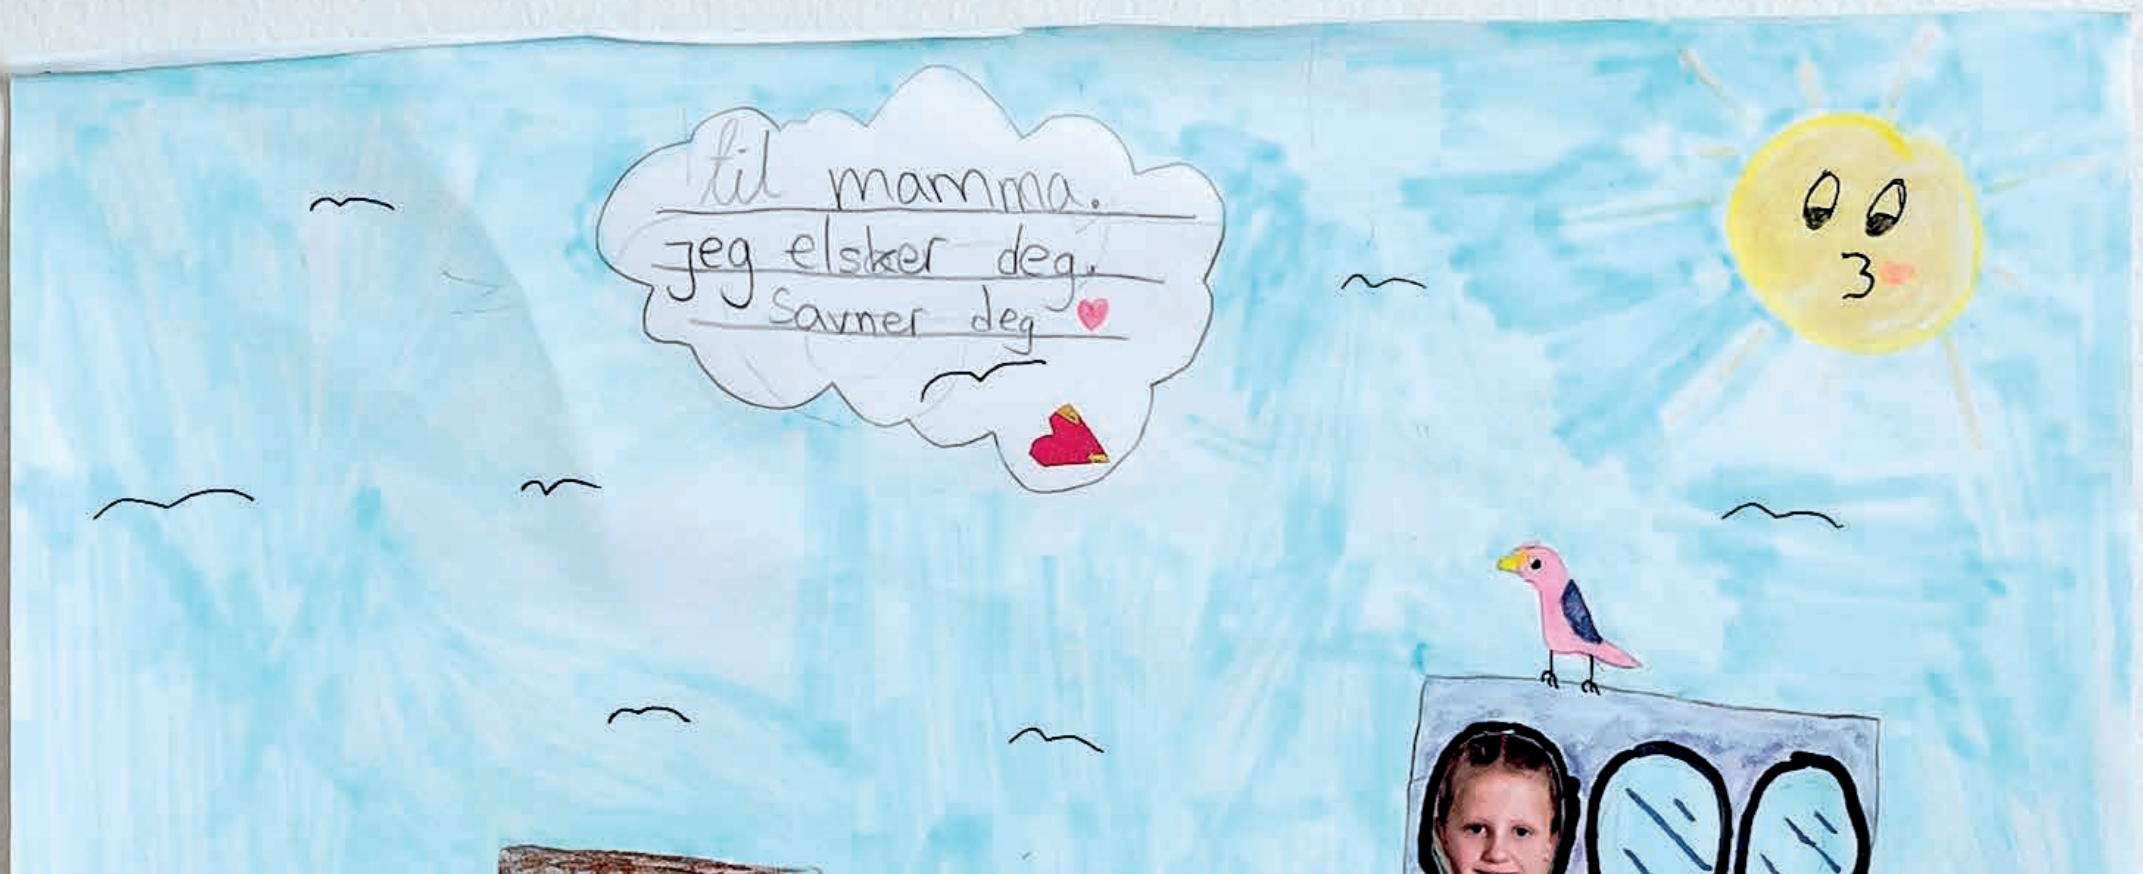 til mamma.
jeg elsker deg.
Savner deg